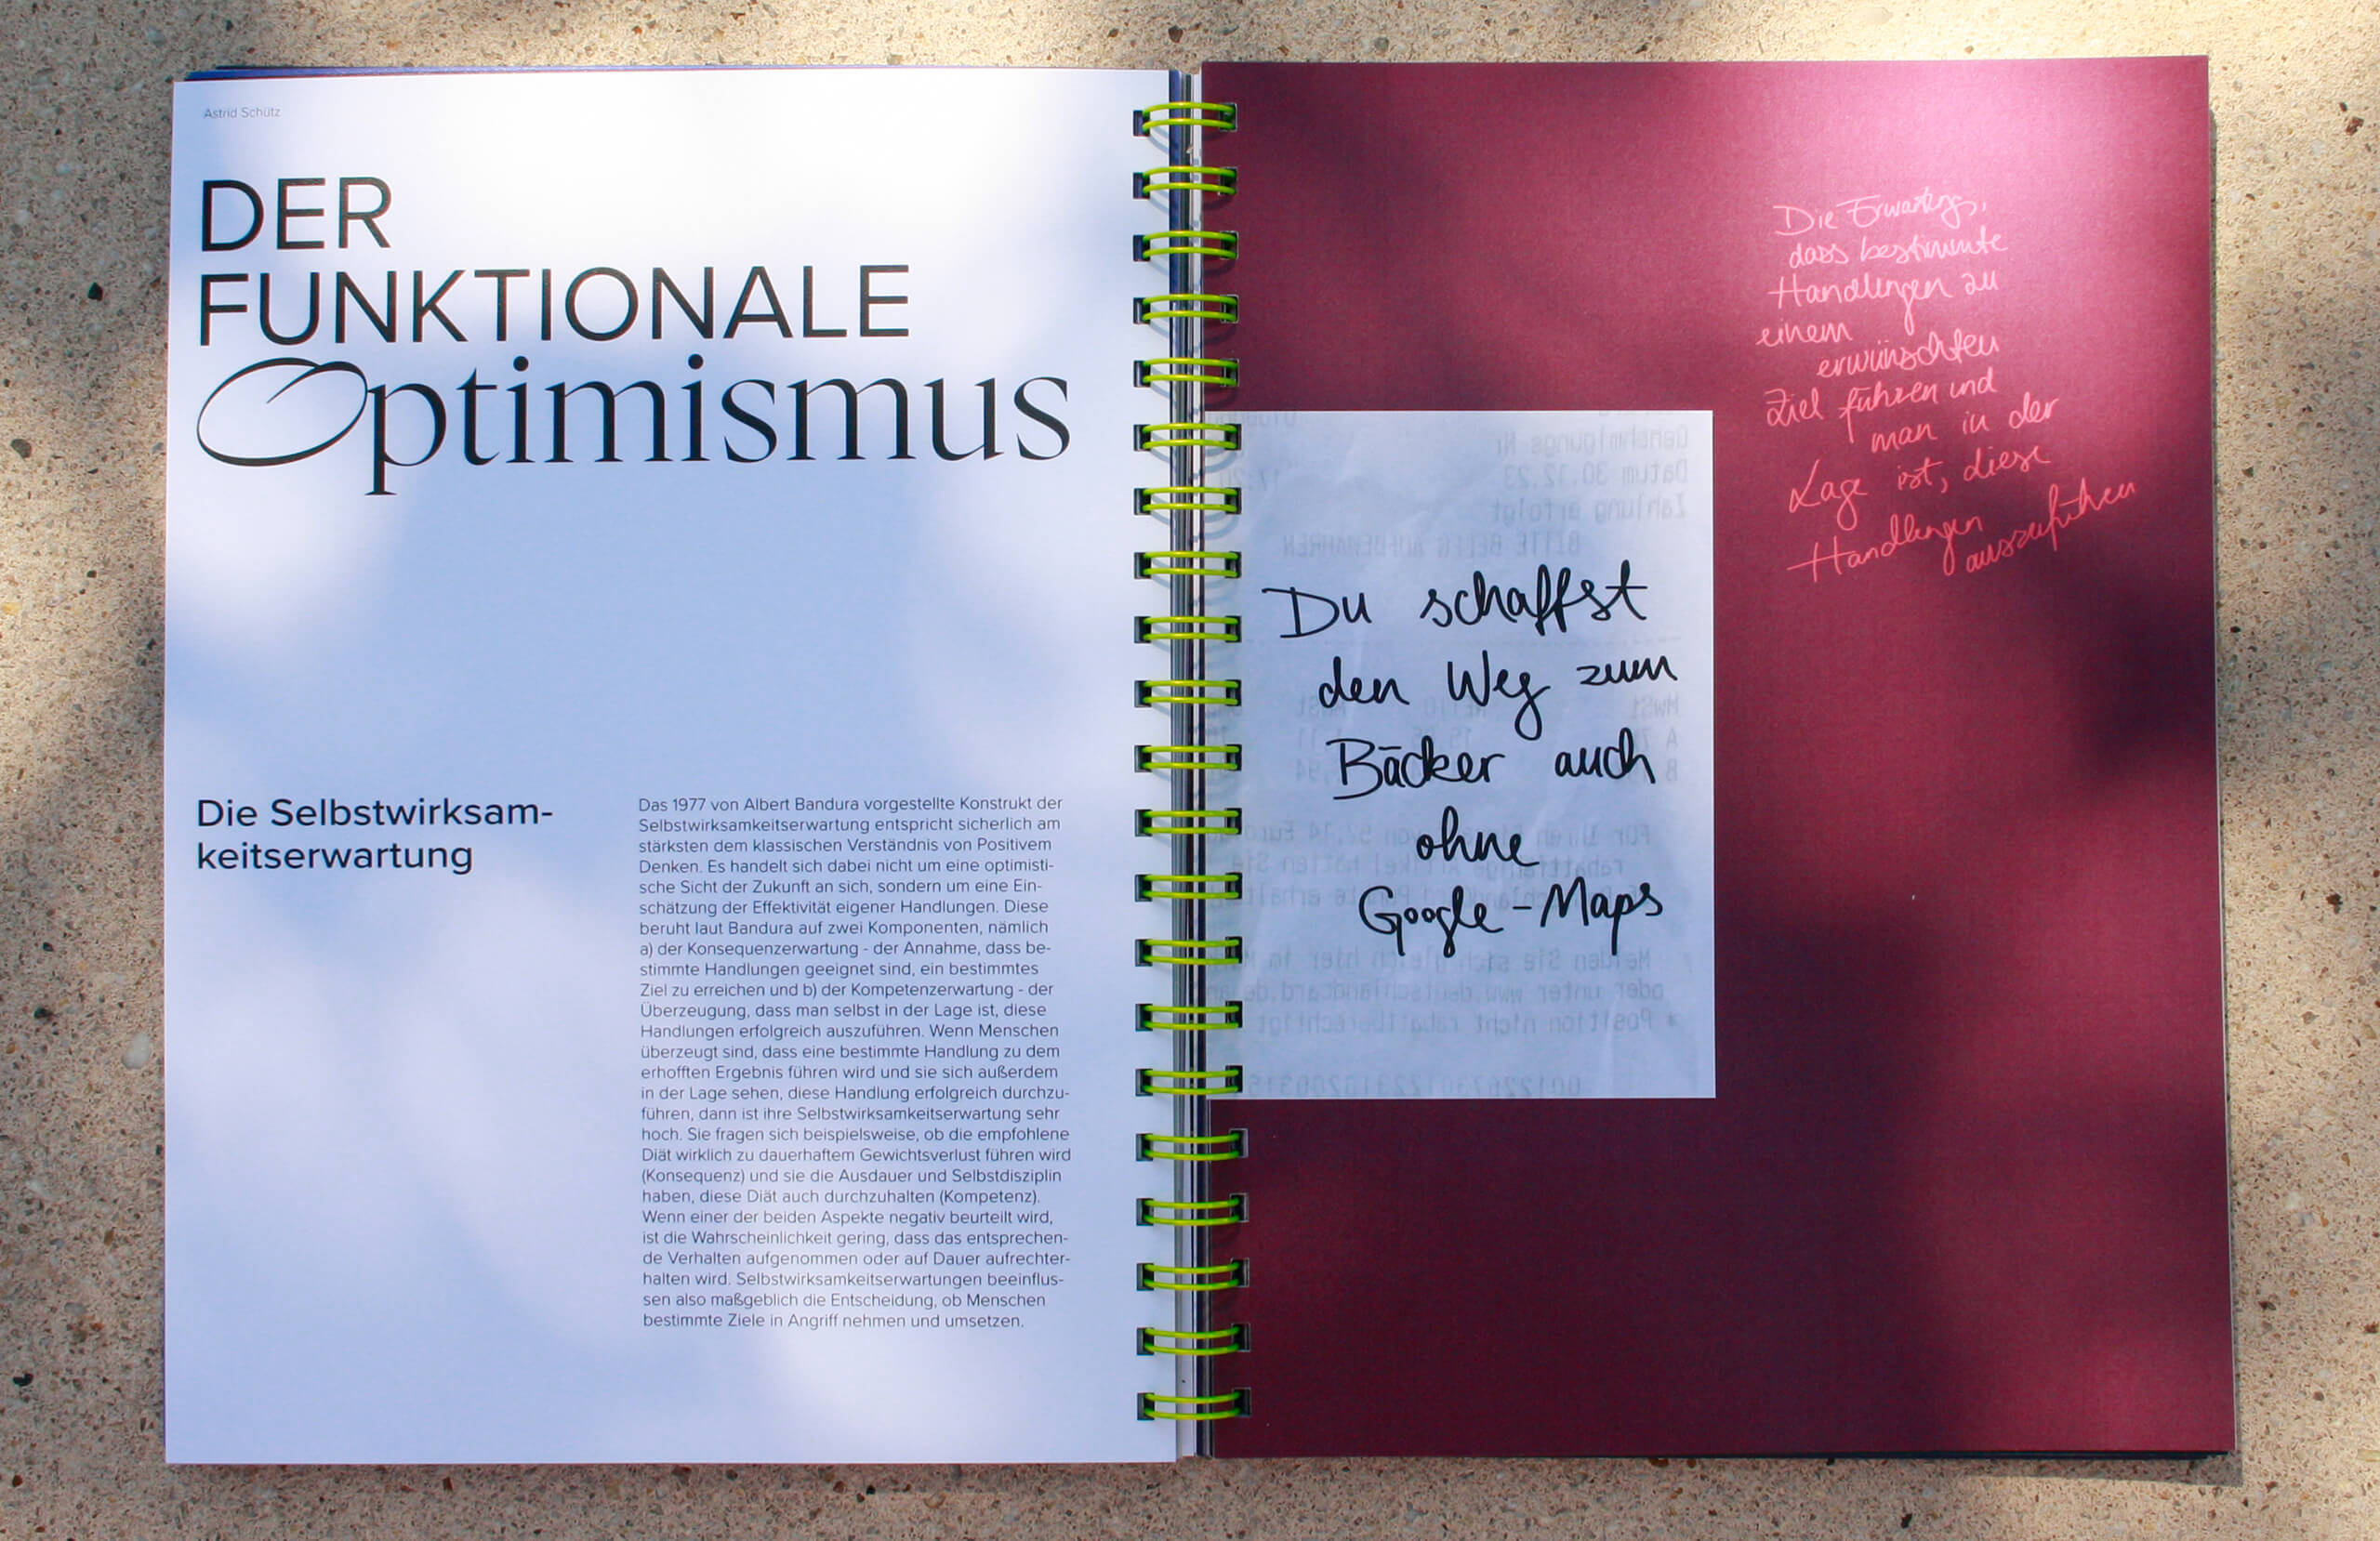 Astrid Schütz
DER
FUNKTIONALE
Optimismus
Die Selbstwirksam-
keitserwartung
Das 1977 von Albert Bandura vorgestellte Konstrukt der
Selbstwirksamkeitserwartung entspricht sicherlich am
stärksten dem klassischen Verständnis von Positivem
Denken. Es handelt sich dabei nicht um eine optimisti-
sche Sicht der Zukunft an sich, sondern um eine Ein-
schätzung der Effektivität eigener Handlungen. Diese
beruht laut Bandura auf zwei Komponenten, nämlich
a) der Konsequenzerwartung - der Annahme, dass be-
stimmte Handlungen geeignet sind, ein bestimmtes
Ziel zu erreichen und b) der Kompetenzerwartung - der
Überzeugung, dass man selbst in der Lage ist, diese
Handlungen erfolgreich auszuführen. Wenn Menschen
überzeugt sind, dass eine bestimmte Handlung zu dem
erhofften Ergebnis führen wird und sie sich außerdem
in der Lage sehen, diese Handlung erfolgreich durchzu-
führen, dann ist ihre Selbstwirksamkeitserwartung sehr
hoch. Sie fragen sich beispielsweise, ob die empfohlene
Diät wirklich zu dauerhaftem Gewichtsverlust führen wird
(Konsequenz) und sie die Ausdauer und Selbstdisziplin
haben, diese Diät auch durchzuhalten (Kompetenz).
Wenn einer der beiden Aspekte negativ beurteilt wird,
ist die Wahrscheinlichkeit gering, dass das entsprechen-
de Verhalten aufgenommen oder auf Dauer aufrechter-
halten wird. Selbstwirksamkeitserwartungen beeinflus-
sen also maßgeblich die Entscheidung, ob Menschen
bestimmte Ziele in Angriff nehmen und umsetzen.
Die Erwartung,
dass bestimmte
Handlungen zu
einem
erwünschten
Ziel führen und
man in der
Lage ist, diese
Handlungen
auszuführen
Du schaffst
den Weg zum
Bäcker auch
ohne
Google-Maps
Genehmigungs Nr
Datum 30.12.23
Zahlung erfolgt
BITTE BELEG AUFBEWAHREN
MwSt
oder unter www.deutschlandcard.de
Position nicht rabattberechtigt